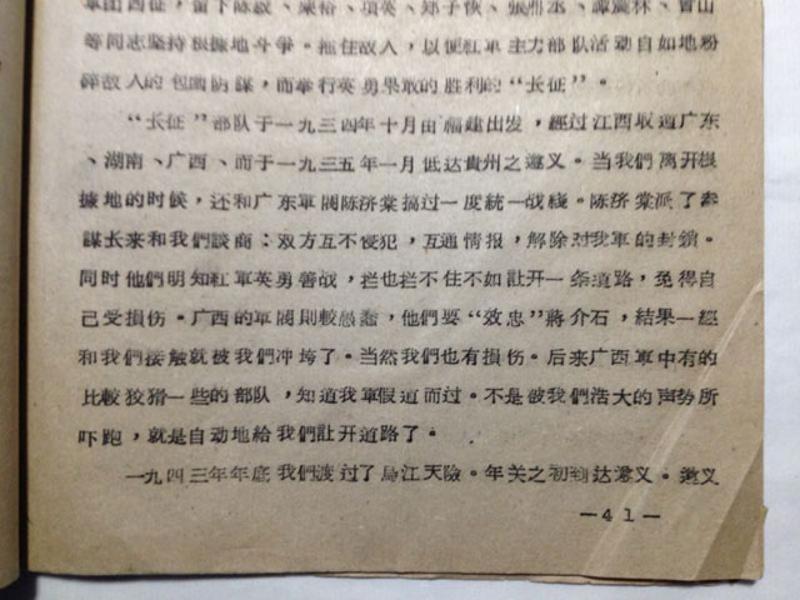 軍团西征，留下陈毅、粟裕、項英、邓子恢、張鼎丞、譚震林、曾山
等同志坚持根據地斗争。拖住敌人，以便紅軍主力部队活动自如地粉
碎敌人的包圍防謀，而举行英勇果敢的胜利的“长征”。
“长征”部队于一九三四年十月由福建出发，經过江西取道广东
、湖南、广西、而于一九三五年一月低达貴州之遵义。当我們离开根
據地的时候，还和广东軍閥陈济棠搞过一度統一战綫。陈济棠派了参
謀长来和我們談商：双方互不侵犯，互通情报，解除对我軍的封鎖。
同时他們明知紅軍英勇善战，拦也拦不住不如訨开一条道路，免得自
己受損伤。广西的軍閥則較愚蠢，他們要“效忠”蔣介石，結果一經
和我們接触就被我們冲垮了。当然我們也有損伤。后来广西軍中有的
比較狡猾一些的部队，知道我軍假道而过。不是被我們浩大的声势所
吓跑，就是自动地給我們訨开道路了。
一九四三年年底我們渡过了烏江天險。年关之初到达遵义。遵义
—41—